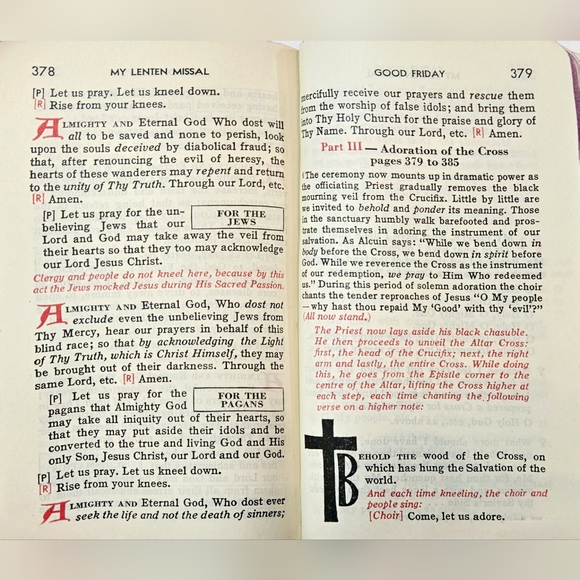 378 MY LENTEN MISSAL
[P] Let us pray. Let us kneel down.
[R] Rise from your knees.
ALMIGHTY AND Eternal God Who dost will
all to be saved and none to perish, look
upon the souls deceived by diabolical fraud; so
that, after renouncing the evil of heresy, the
hearts of these wanderers may repent and return
to the unity of Thy Truth. Through our Lord, etc.
[R] Amen.
[P] Let us pray for the un-
believing Jews that our
FOR THE
JEWS
Lord and God may take away the veil from
their hearts so that they too may acknowledge
our Lord Jesus Christ.
Clergy and people do not kneel here, because by this
act the Jews mocked Jesus during His Sacred Passion.
ALMIGHTY AND Eternal God, Who dost not
exclude even the unbelieving Jews from
Thy Mercy, hear our prayers in behalf of this
blind race; so that by acknowledging the Light
of Thy Truth, which is Christ Himself, they may
be brought out of their darkness. Through the
same Lord, etc. [R] Amen.
[P] Let us pray for the
pagans that Almighty God
FOR THE
PAGANS
may take all iniquity out of their hearts, so
that they may put aside their idols and be
converted to the true and living God and His
only Son, Jesus Christ, our Lord and our God.
[P] Let us pray. Let us kneel down.
[R] Rise from your knees.
ALMIGHTY AND Eternal God, Who dost ever
seek the life and not the death of sinners;
GOOD FRIDAY 379
mercifully receive our prayers and rescue them
from the worship of false idols; and bring them
into Thy Holy Church for the praise and glory of
Thy Name. Through our Lord, etc. [R] Amen.
Part III — Adoration of the Cross
pages 379 to 385
(The ceremony now mounts up in dramatic power as
the officiating Priest gradually removes the black
mourning veil from the Crucifix. Little by little are
we invited to behold and ponder its meaning. Those
in the sanctuary humbly walk barefooted and pros-
trate themselves in adoring the instrument of our
salvation. As Alcuin says: "While we bend down in
body before the Cross, we bend down in spirit before
God. While we reverence the Cross as the instrument
of our redemption, we pray to Him Who redeemed
us." During this period of solemn adoration the choir
chants the tender reproaches of Jesus "O My people
—why hast thou repaid My 'Good' with thy 'evil'?"
(All now stand.)
The Priest now lays aside his black chasuble.
He then proceeds to unveil the Altar Cross:
first, the head of the Crucifix; next, the right
arm and lastly, the entire Cross. While doing
this, he goes from the Epistle corner to the
centre of the Altar, lifting the Cross higher at
each step, each time chanting the following
verse on a higher note:
BEHOLD THE wood of the Cross, on
which has hung the Salvation of the
world.
And each time kneeling, the choir and
people sing:
[Choir] Come, let us adore.